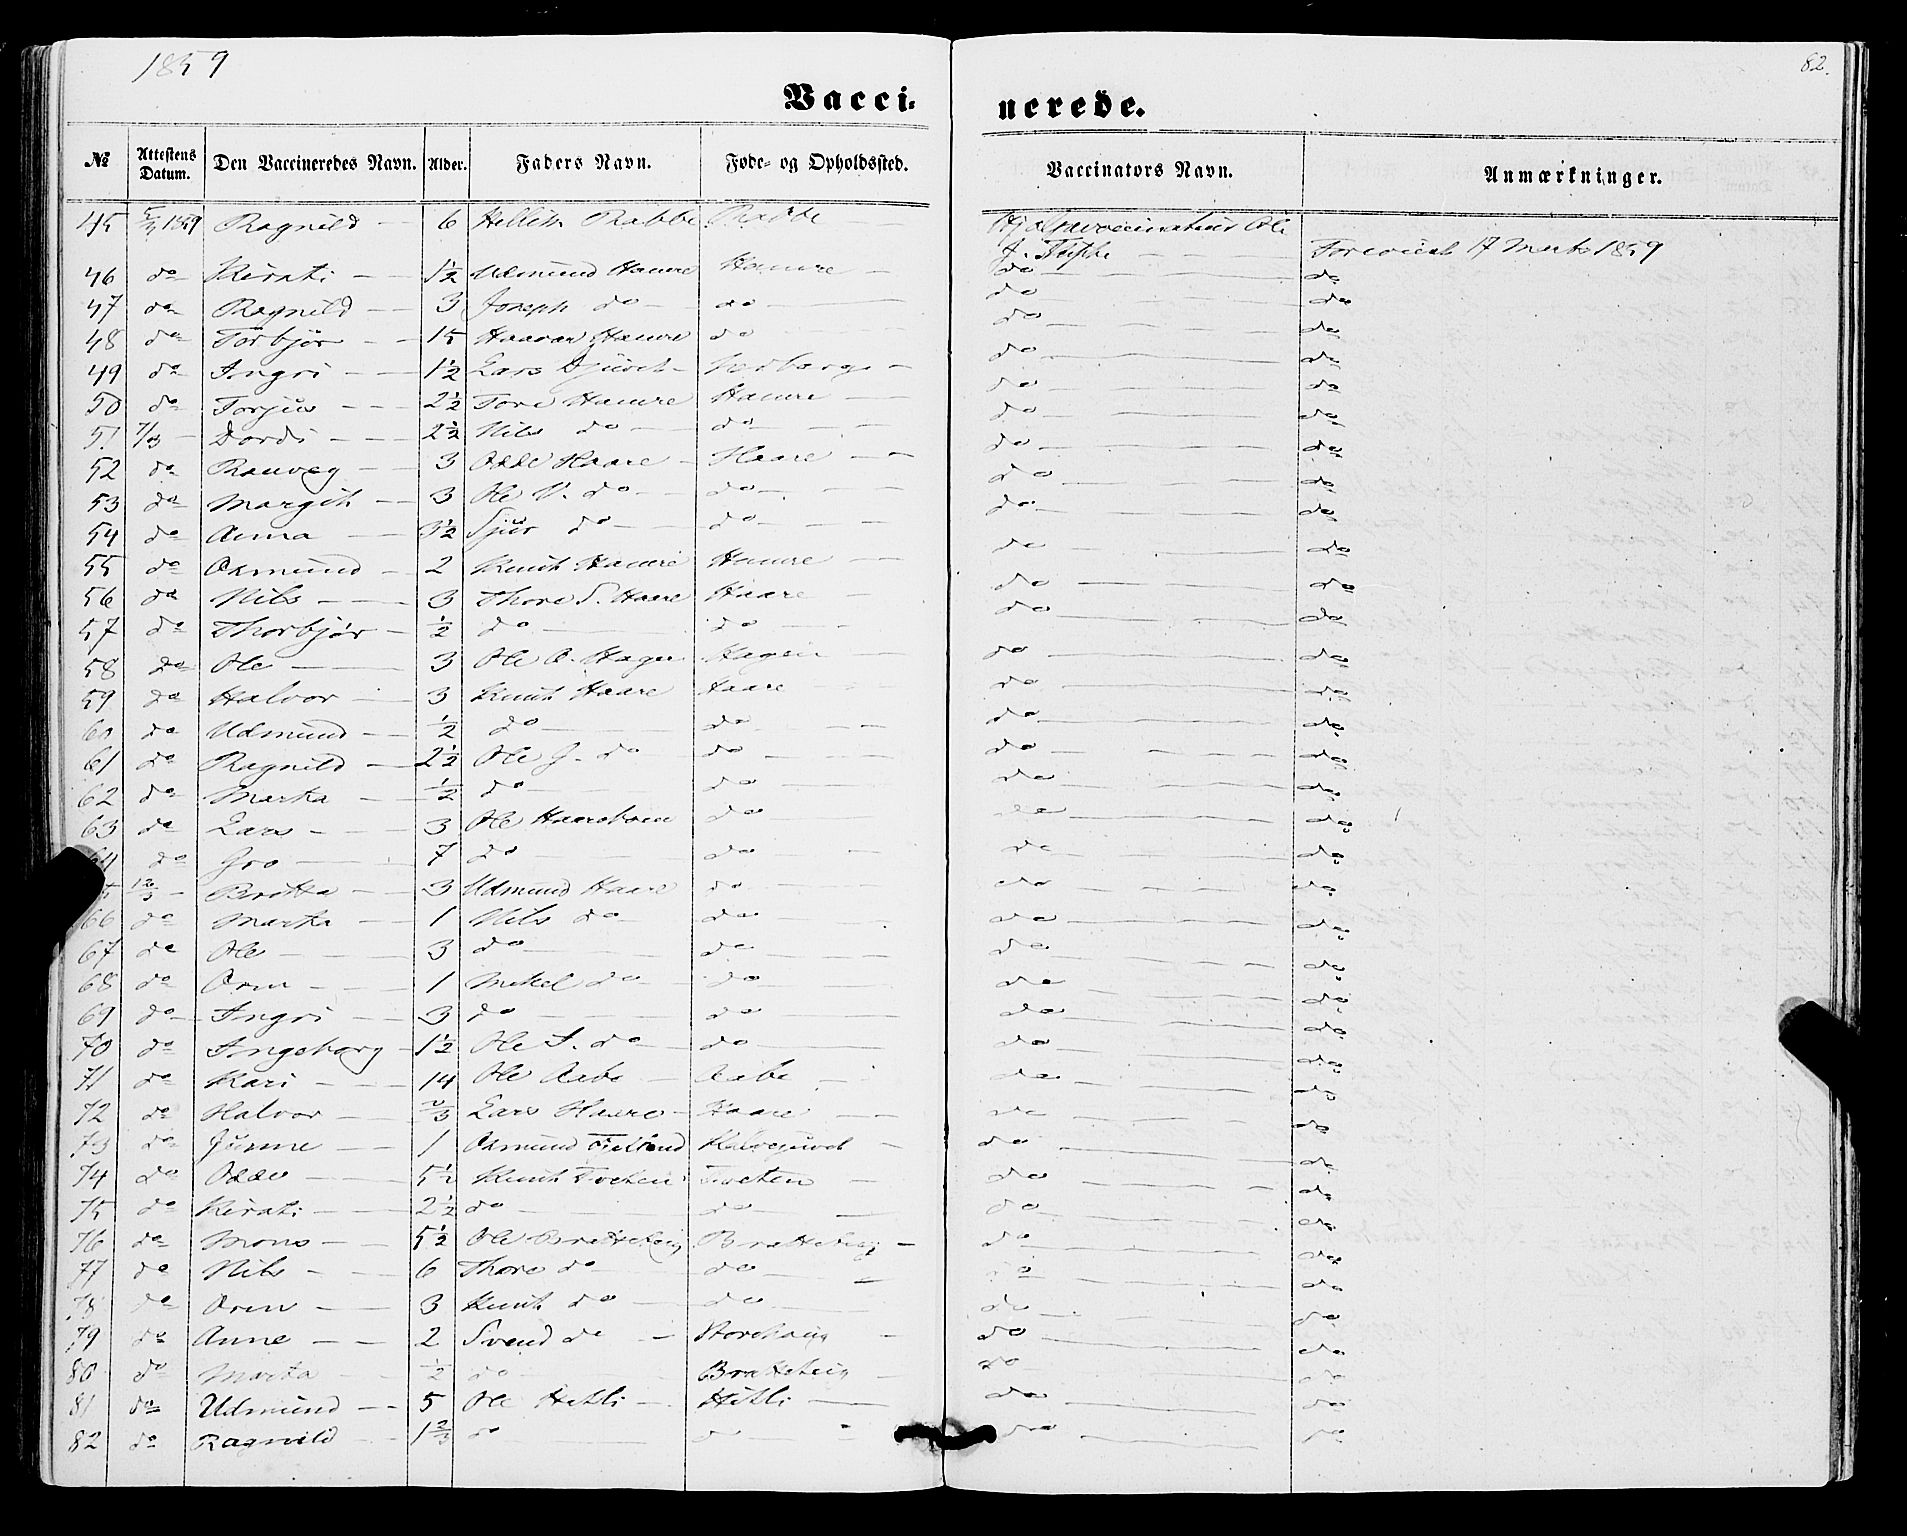 1859
82.
Vacci-
nerede.
№ Attestens Datum. Den Vaccineredes Navn. Alder. Faders Navn. Føde- og Opholdssted. Vaccinators Navn. Anmærkninger.
45 5/3 1859 Ragnild — 6 Rabbe Rabbe — Hjelpevaccinateur Ole
J. — — Foreviist 17 Marts 1859
46 do Kirsti — — 1½ Udmund Haure Haure — do do
47 do Ragnild — — 3 Joseph do — do — do do
48 do Torbjør — — 15 Haavar Haure do do — do
49 do Ingri — — 1½ Lars — — do — do
50 do Torjus — — 2½ Tore Haure Haure — do — do
51 7/3 — Dordi — — 2½ Nils do — do — do — do
52 do Rauveg — — 3 Odde Haare — Haare — do — do
53 do Margit — — 3 Ole V. do — do — do — do
54 do Anna — — 3½ Sjur do — do — do — do
55 do Osmund — 2 Knut Haure Haure — do — do
56 do Nils — — 3 Thore S. Haare Haare — do — do
57 do Thorbjør — ½ do — do — do — do
58 do Ole — — 3 Ole O. Hagen Hagen — do — do
59 do Halvor — 3 Knut Haare Haare — do — do
60 do Udmund — — ½ do — do — do — do
61 do Ragnild — 2½ Ole G. do do — do — do
62 do Marta — — ½ do — do — do — do
63 do Lars — — 3 Ole do do — do
64 do Gro — — 7 do — do — do — do
12/3 — Britta — — 3 Udmund Haare do — do — do
66 do Marta — — 1 Nils do — do — do — do
67 do Ole — — 3 do — do — do — do
68 do Orm — — 1 Mikel do — do — do — do
69 do Ingri — — 3 do — do — do — do
70 do Ingeborg — 1½ Ole S. do — do — do — do
71 do Kari — — 14 Ole Aabø — Aabø — do — do
72 do Halvor — ⅔ Lars Haare — Haare — do — do
73 do — — 1 Osmund — do — do
74 do Odde — — 5½ Knut Tveten Tveten — do — do
75 do Kirsti — — 2½ do — do — do — do
76 do Mons — — 5½ Ole Bratteteig Bratteteig — do — do
77 do Nils — — 6 Thore do — do — do — do
78 do Orm — — 3 Knut do — do — do — do
79 do Anne — — 2 Svend do — Storehaug — do — do
80 do Marta — ½ do Bratteteig — do — do
81 do Udmund — — 5 Ole Hetli — Hetli — do — do
82 do Ragnild — 1⅔ do — do — do — do